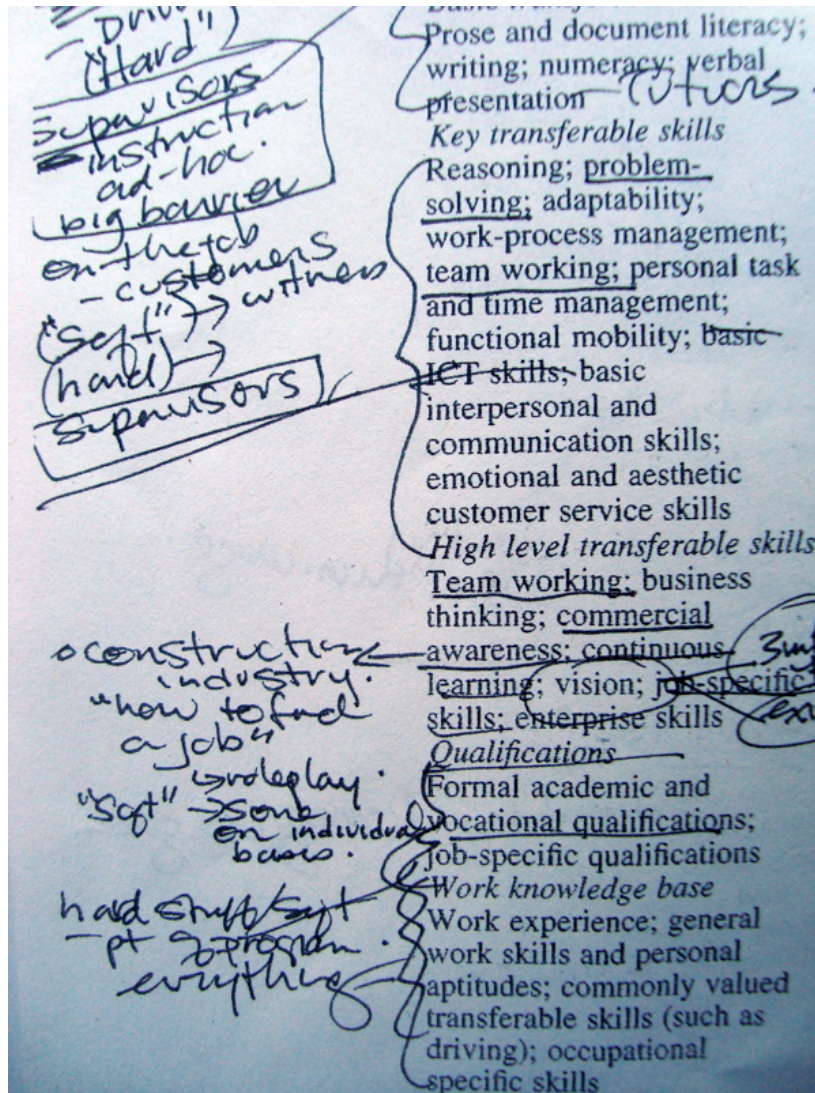 ("Hard")
Supervisors
- instruction
ad-hoc.
big barrier
on-the-job
- customers
"(Soft") → witness
(hard) →
Supervisors
o construction
industry.
"how to find
a job"
↳ roleplay.
"Soft" → some
on individual
bases.
hard stuff/soft
- pt of program.
everything
Prose and document literacy;
writing; numeracy; verbal
presentation - Tutors
Key transferable skills
Reasoning; problem-
solving; adaptability;
work-process management;
team working; personal task
and time management;
functional mobility; basic
ICT skills; basic
interpersonal and
communication skills;
emotional and aesthetic
customer service skills
High level transferable skills
Team working; business
thinking; commercial
awareness; continuous
learning; vision; job-specific
skills; enterprise skills
Qualifications
Formal academic and
vocational qualifications;
job-specific qualifications
Work knowledge base
Work experience; general
work skills and personal
aptitudes; commonly valued
transferable skills (such as
driving); occupational
specific skills